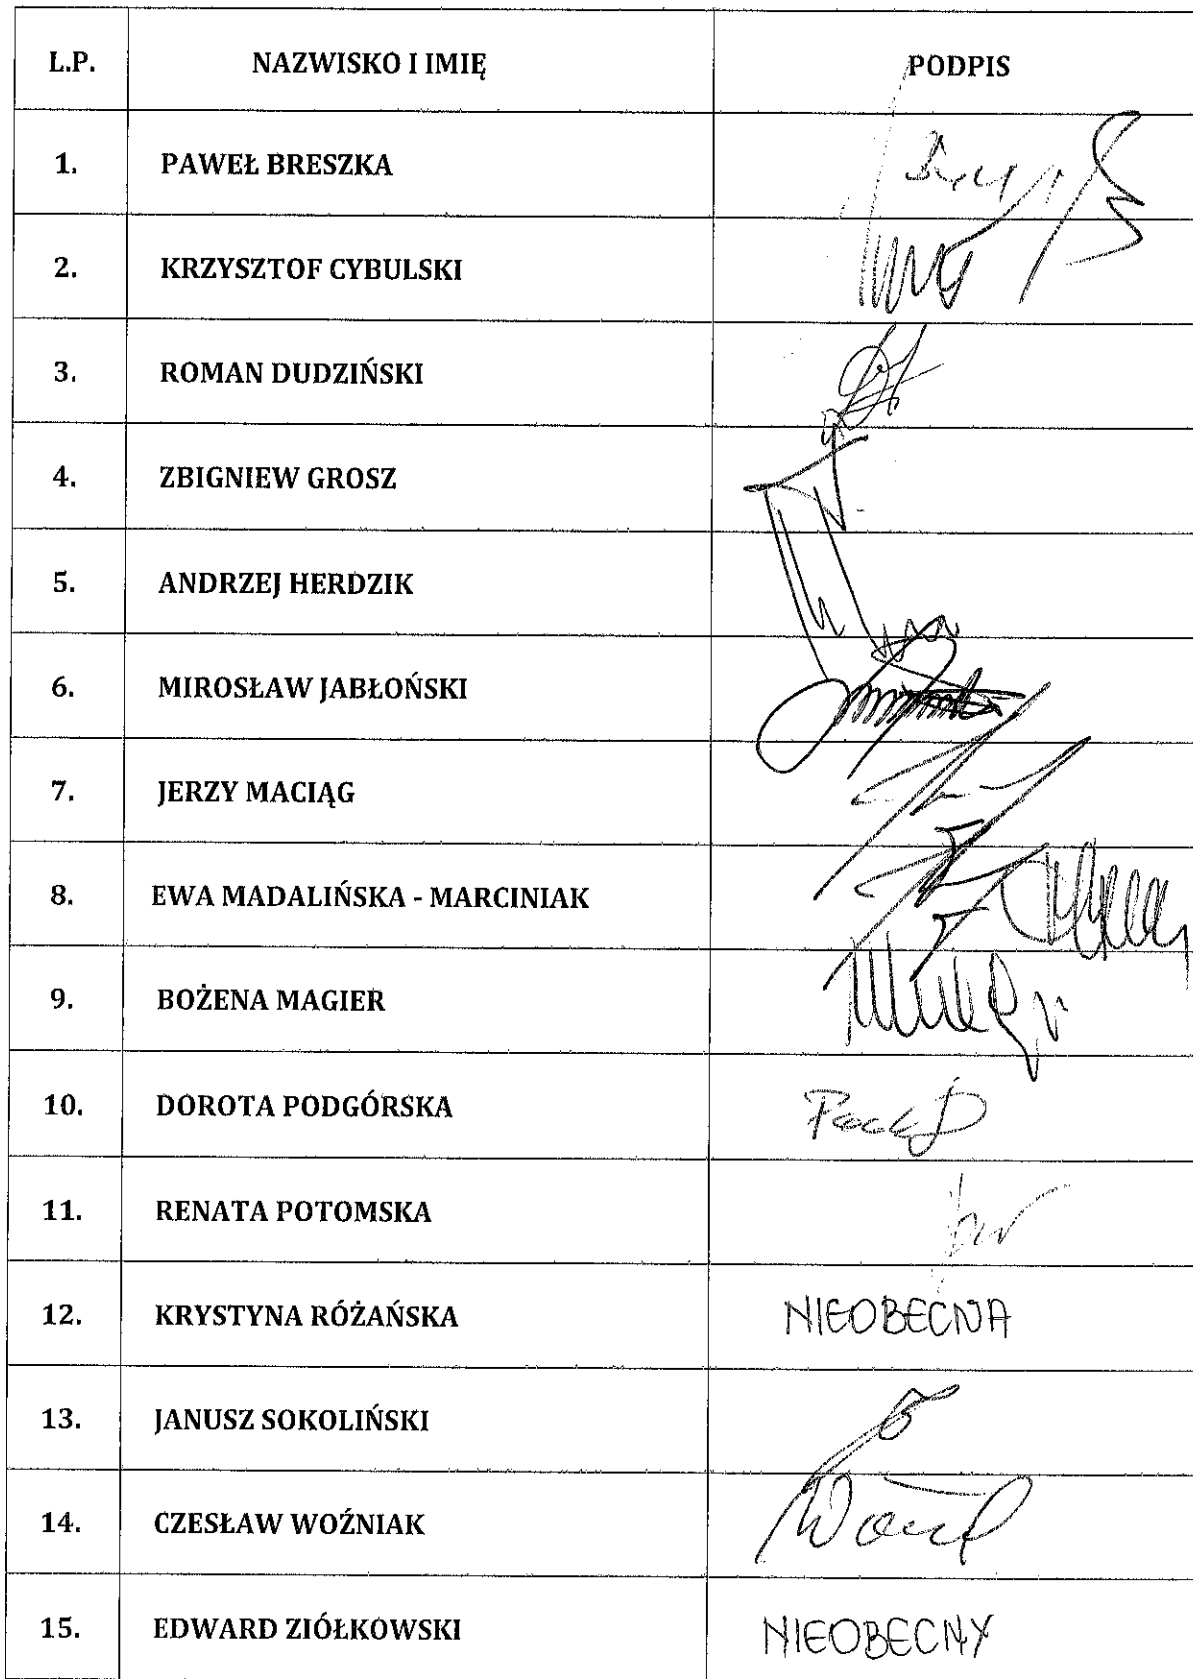 L.P. NAZWISKO I IMIĘ PODPIS
1. PAWEŁ BRESZKA
2. KRZYSZTOF CYBULSKI
3. ROMAN DUDZIŃSKI
4. ZBIGNIEW GROSZ
5. ANDRZEJ HERDZIK
6. MIROSŁAW JABŁOŃSKI
7. JERZY MACIĄG
8. EWA MADALIŃSKA - MARCINIAK
9. BOŻENA MAGIER
10. DOROTA PODGÓRSKA
11. RENATA POTOMSKA
12. KRYSTYNA RÓŻAŃSKA NIEOBECNA
13. JANUSZ SOKOLIŃSKI
14. CZESŁAW WOŹNIAK
15. EDWARD ZIÓŁKOWSKI NIEOBECNY